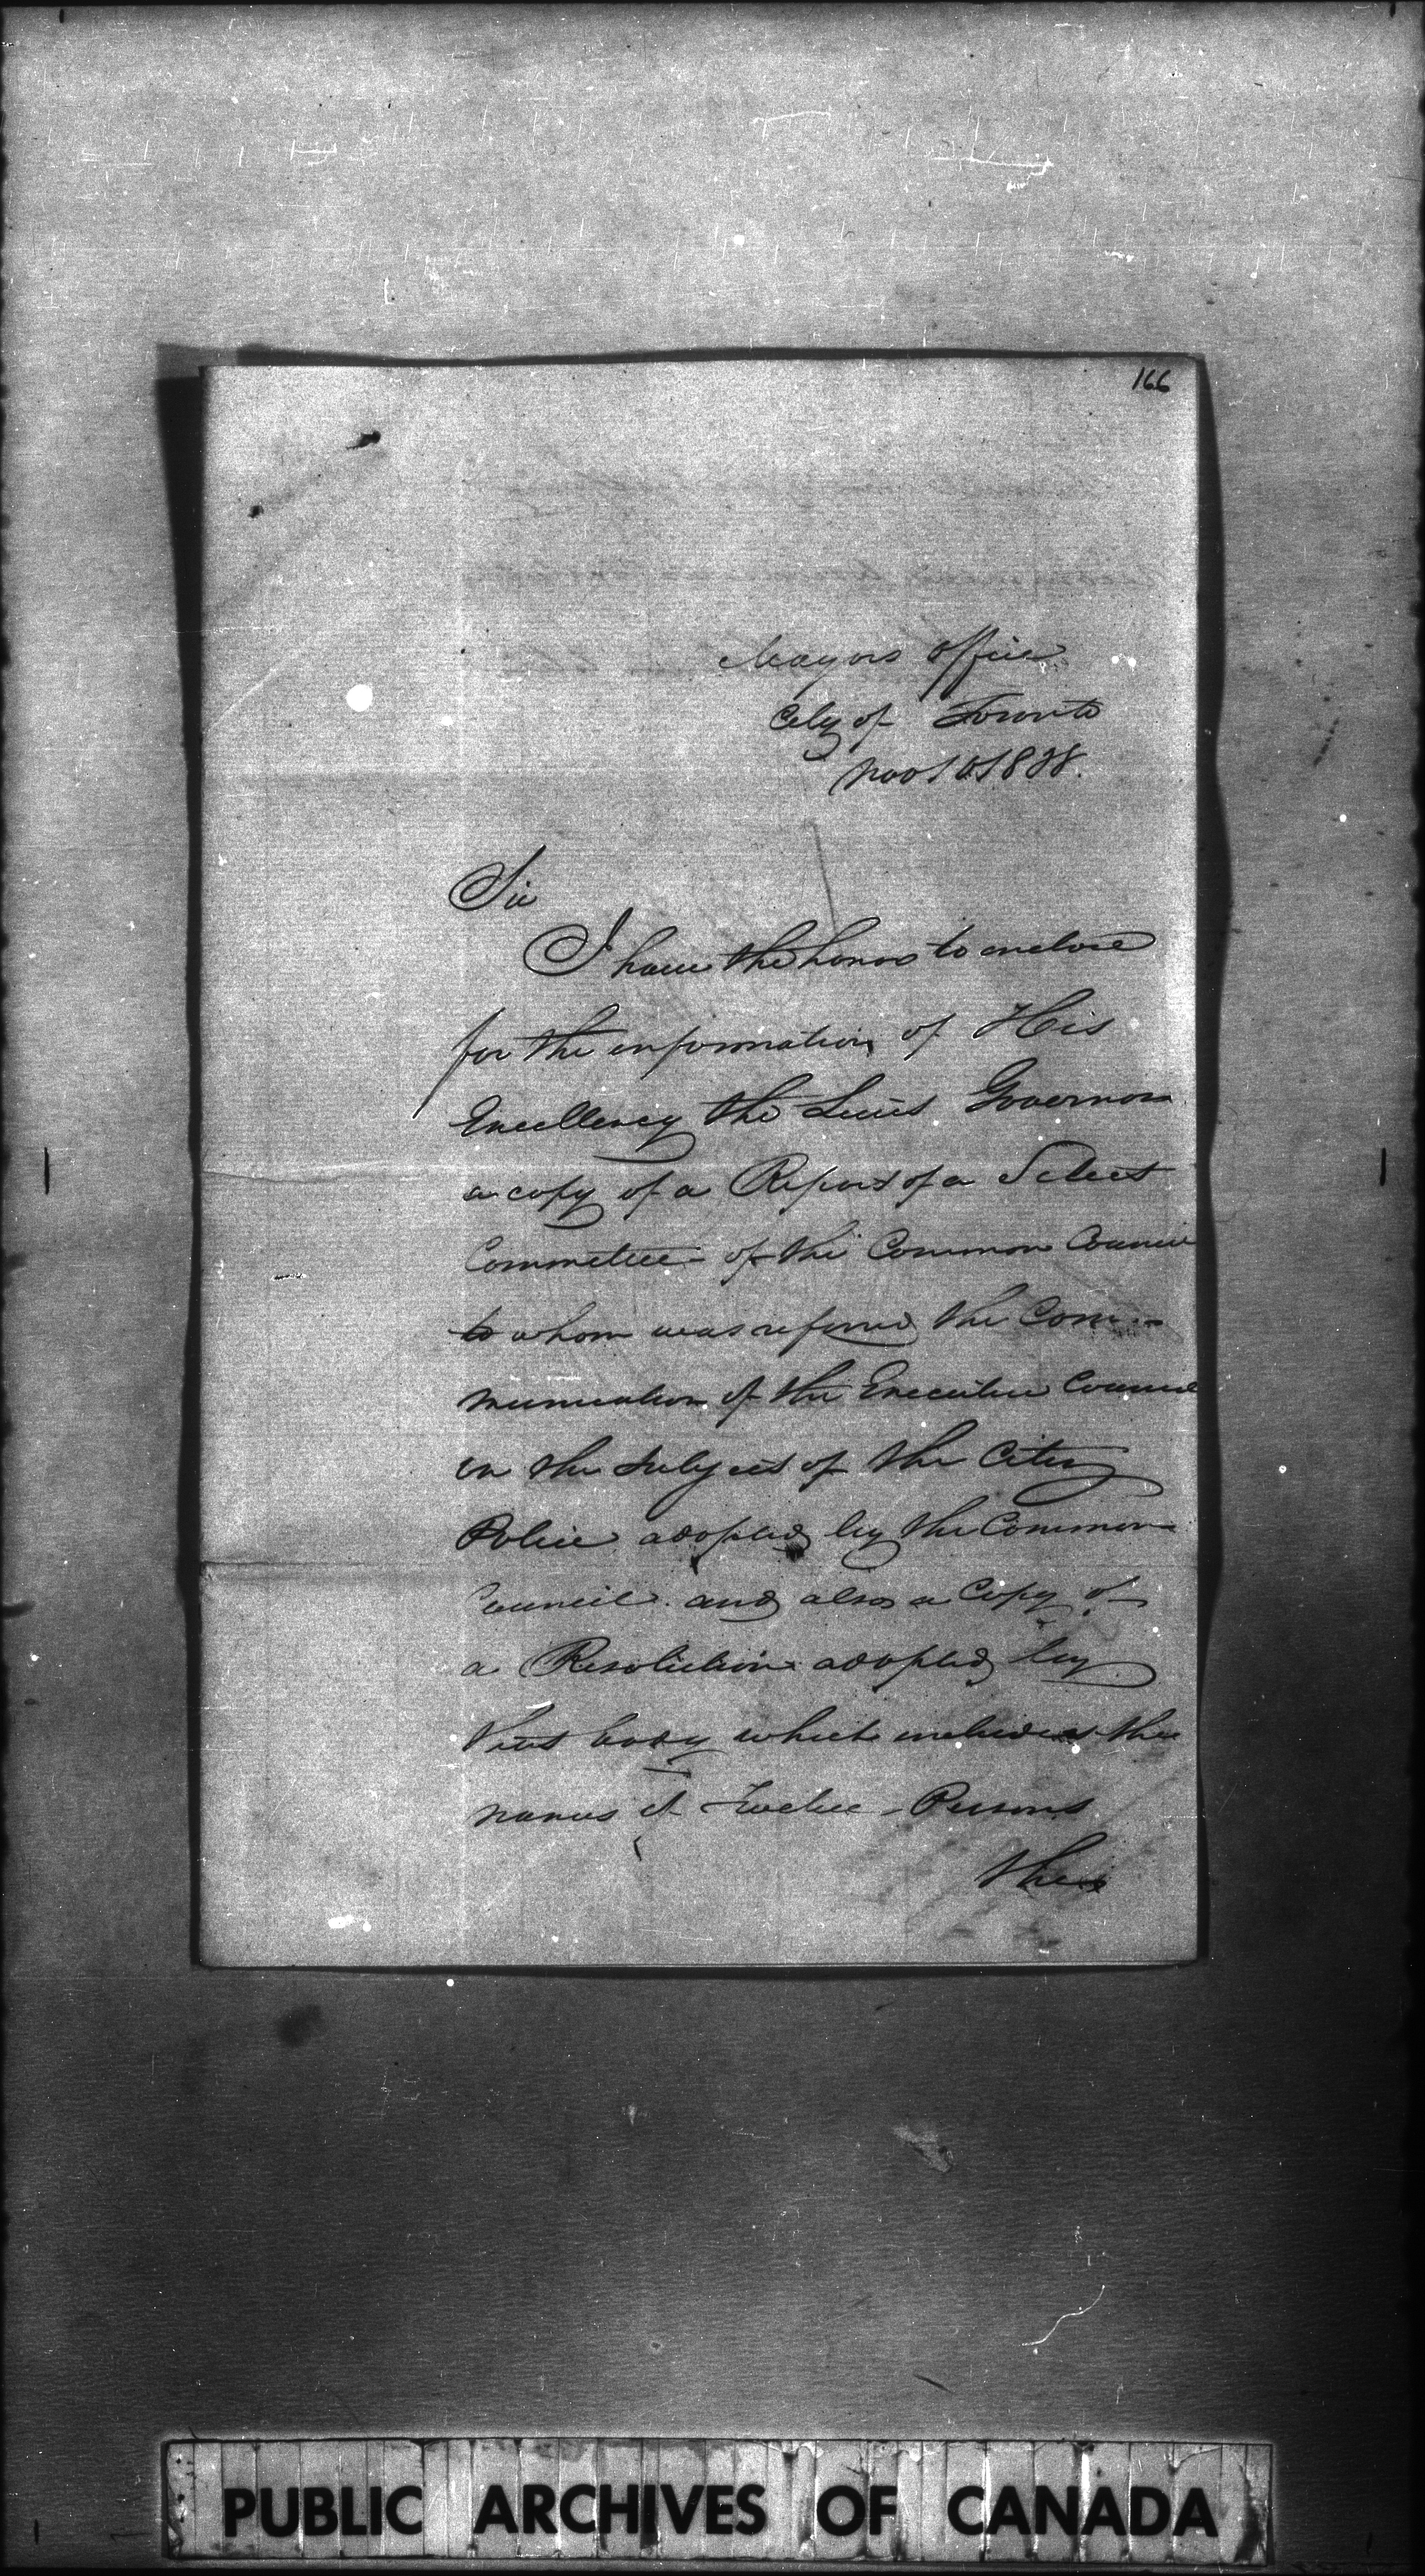 166
Mayors Office
City of Toronto
Nov 10 1838.
Sir
I have the honor to enclose
for the information of His
Excellency the Lieut Governor
a copy of a Report of a Select
Committee of the Common Council
to whom was referred the Com-
munication of the Executive Council
on the subject of the City
Police adopted by the Common
Council and also a Copy of
a Resolution adopted by
that body which includes the
names of Twelve Persons
the
PUBLIC ARCHIVES OF CANADA